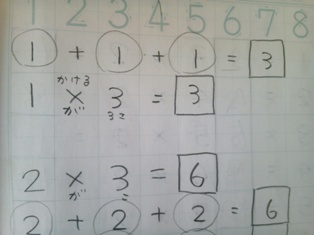 1 2 3 4 5 6 7 8
1 + 1 + 1 = 3
かける
1 × 3 = 3
が
2 × 3 = 6
が
2 + 2 + 2 = 6